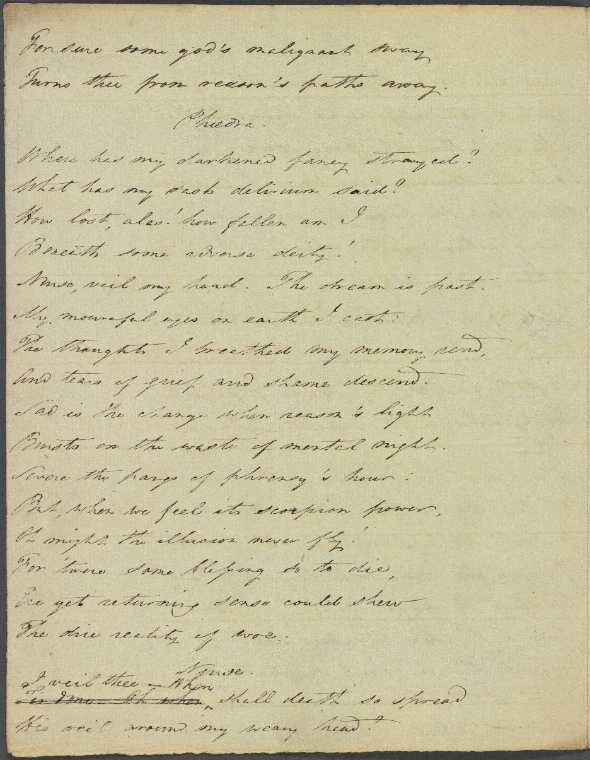 For sure some god's malignant sway
Turns thee from reason's paths away.
Phædra.
Where has my darkened fancy strayed?
What has my rash delirium said?
How lost, alas! how fallen am I
Beneath some adverse deity!
Nurse, veil my head. The dream is past.
My mournful eyes on earth I cast:
The thoughts I breathed my memory rend,
And tears of grief and shame descend.
Sad is the change when reason's light
Bursts on the waste of mental night.
Severe the pangs of phrensy's hour:
But, when we feel its scorpion power,
Oh might the illusion never fly!
For 'twere some blessing so to die,
Ere yet returning sense could shew
The dire reality of woe.
Nurse.
I veil thee – When
shall death so spread
His veil around my weary head?